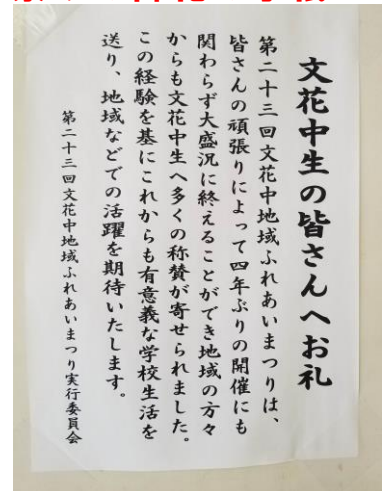 文花中生の皆さんへお礼
第二十三回文花中地域ふれあいまつりは、
皆さんの頑張りによって四年ぶりの開催にも
関わらず大盛況に終えることができ地域の方々
からも文花中生へ多くの称賛が寄せられました。
この経験を基にこれからも有意義な学校生活を
送り、地域などでの活躍を期待いたします。
第二十三回文花中地域ふれあいまつり実行委員会